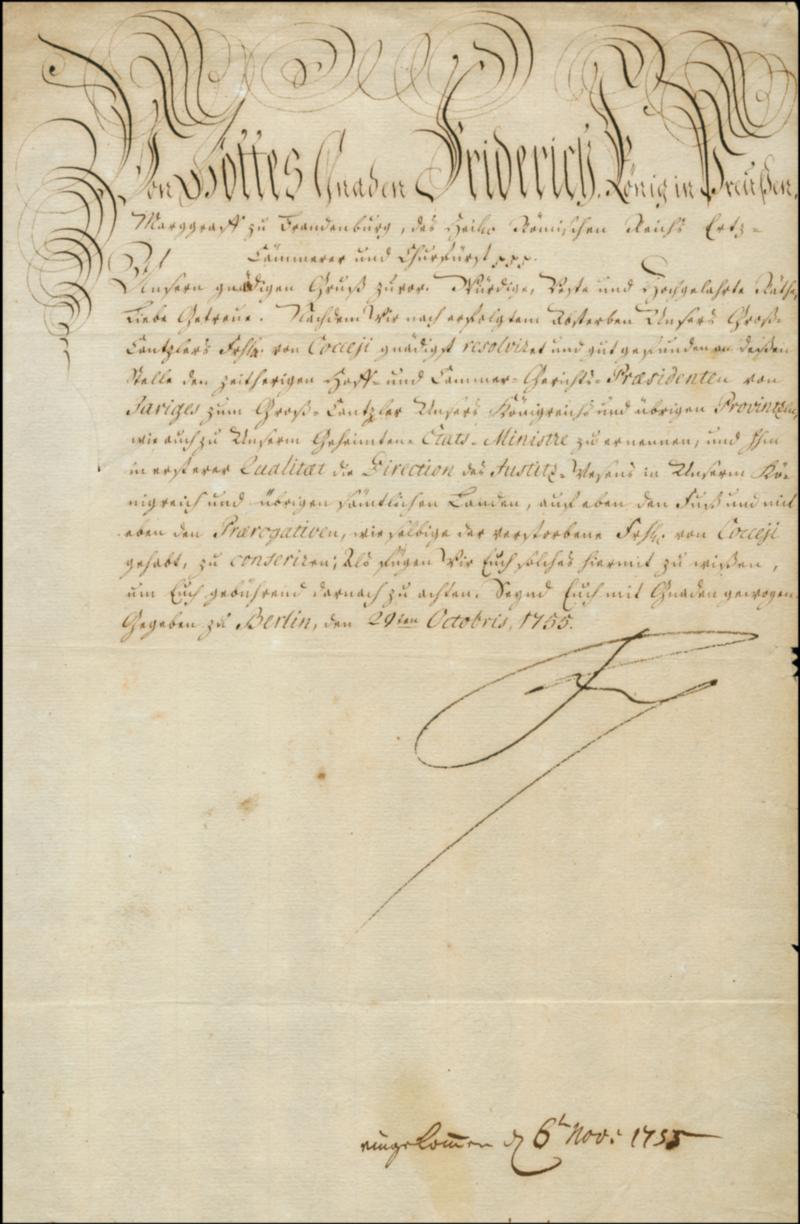 Von Gottes Gnaden Friderich, König in Preußen,
Marggraff zu Brandenburg, des Heil. Römischen Reichs Ertz-
Cämmerer und Churfürst
Unsern gnädigen Gruß zuvor. Würdige, Veste und Hochgelahrte Räthe,
Liebe Getreue. Nachdem Wir nach erfolgtem Absterben Unsers Groß-
Cantzlers Frhh. von Cocceji gnädigst resolviret und gut gefunden an deßen
Stelle den zeitherigen Hoff- und Cammer-Gerichts-Præsidenten von
Jariges zum Groß-Cantzler Unsers Königreichs und übrigen Provintzen,
wie auch zu Unserm Geheimten Etats-Ministre zu ernennen, und Ihm
in ersterer Qualitæt die Direction des Justitz-Wesens in Unserm Kö-
nigreich und übrigen sämtlichen Landen, auf eben den Fuß und mit
eben den Prærogativen, wie selbige der verstorbene Frhh. von Cocceji
gehabt, zu conferiren; Als fügen Wir Euch solches hiermit zu wißen,
um Euch gebührend darnach zu achten. Seynd Euch mit Gnaden gewogen.
Gegeben zu Berlin, den 29ten Octobris, 1755.
eingekommen d 6t Nov: 1755